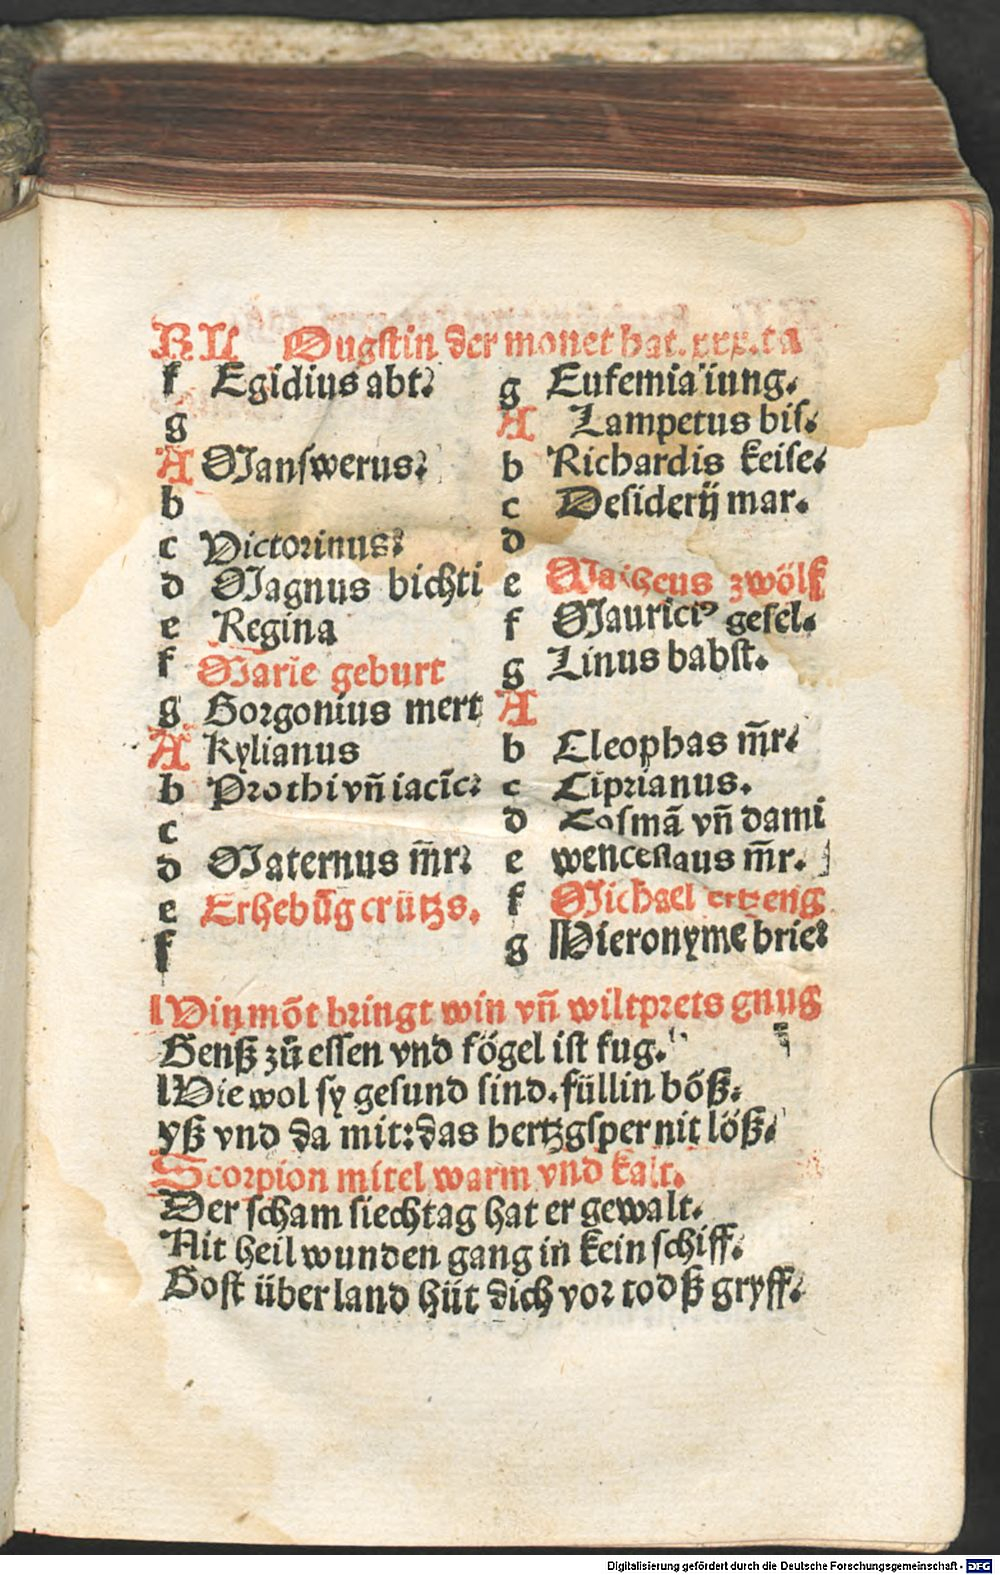 KL Ougstin der monet hat. xxx. ta
f Egidius abt.
g
A Manswerus.
b
c Victorinus.
d Magnus bichti
e Regina
f Marie geburt
g Gorgonius mert
A Kylianus
b Prothi vñ iacīc.
c
d Maternus m̄r.
e Erhebūg crützs.
f
g Eufemia iung.
A Lampetus bis.
b Richardis keise.
c Desiderij mar.
d
e Matheus zwölf
f Maurici⁹ gesel.
g Linus babst.
A
b Cleophas m̄r.
c Ciprianus.
d Cosmā vñ dami
e wenceslaus m̄r.
f Michael ertzeng
g Hieronyme brie.
Winmōt bringt win vñ wiltprets gnug
Genß zū essen vnd fögel ist fug.
Wie wol sy gesund sind. füllin böß.
yß vnd da mit: das hertzgsper nit löß.
Scorpion mitel warm vnd kalt.
Der scham siechtag hat er gewalt.
Nit heil wunden gang in kein schiff.
Gost über land hüt dich vor todß gryff.
Digitalisierung gefördert durch die Deutsche Forschungsgemeinschaft - DFG